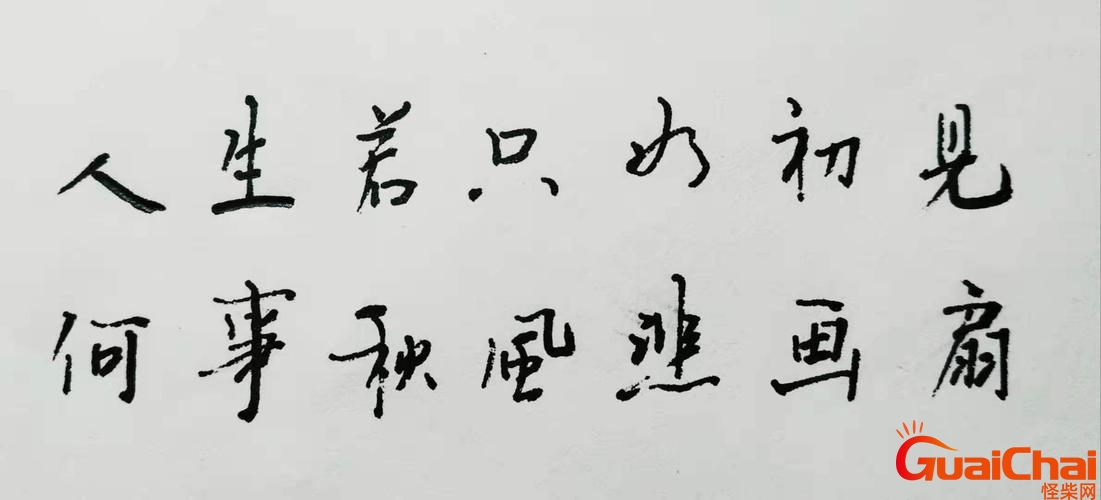 人生若只如初见
何事秋风悲画扇
GuaiChai
怪柴网